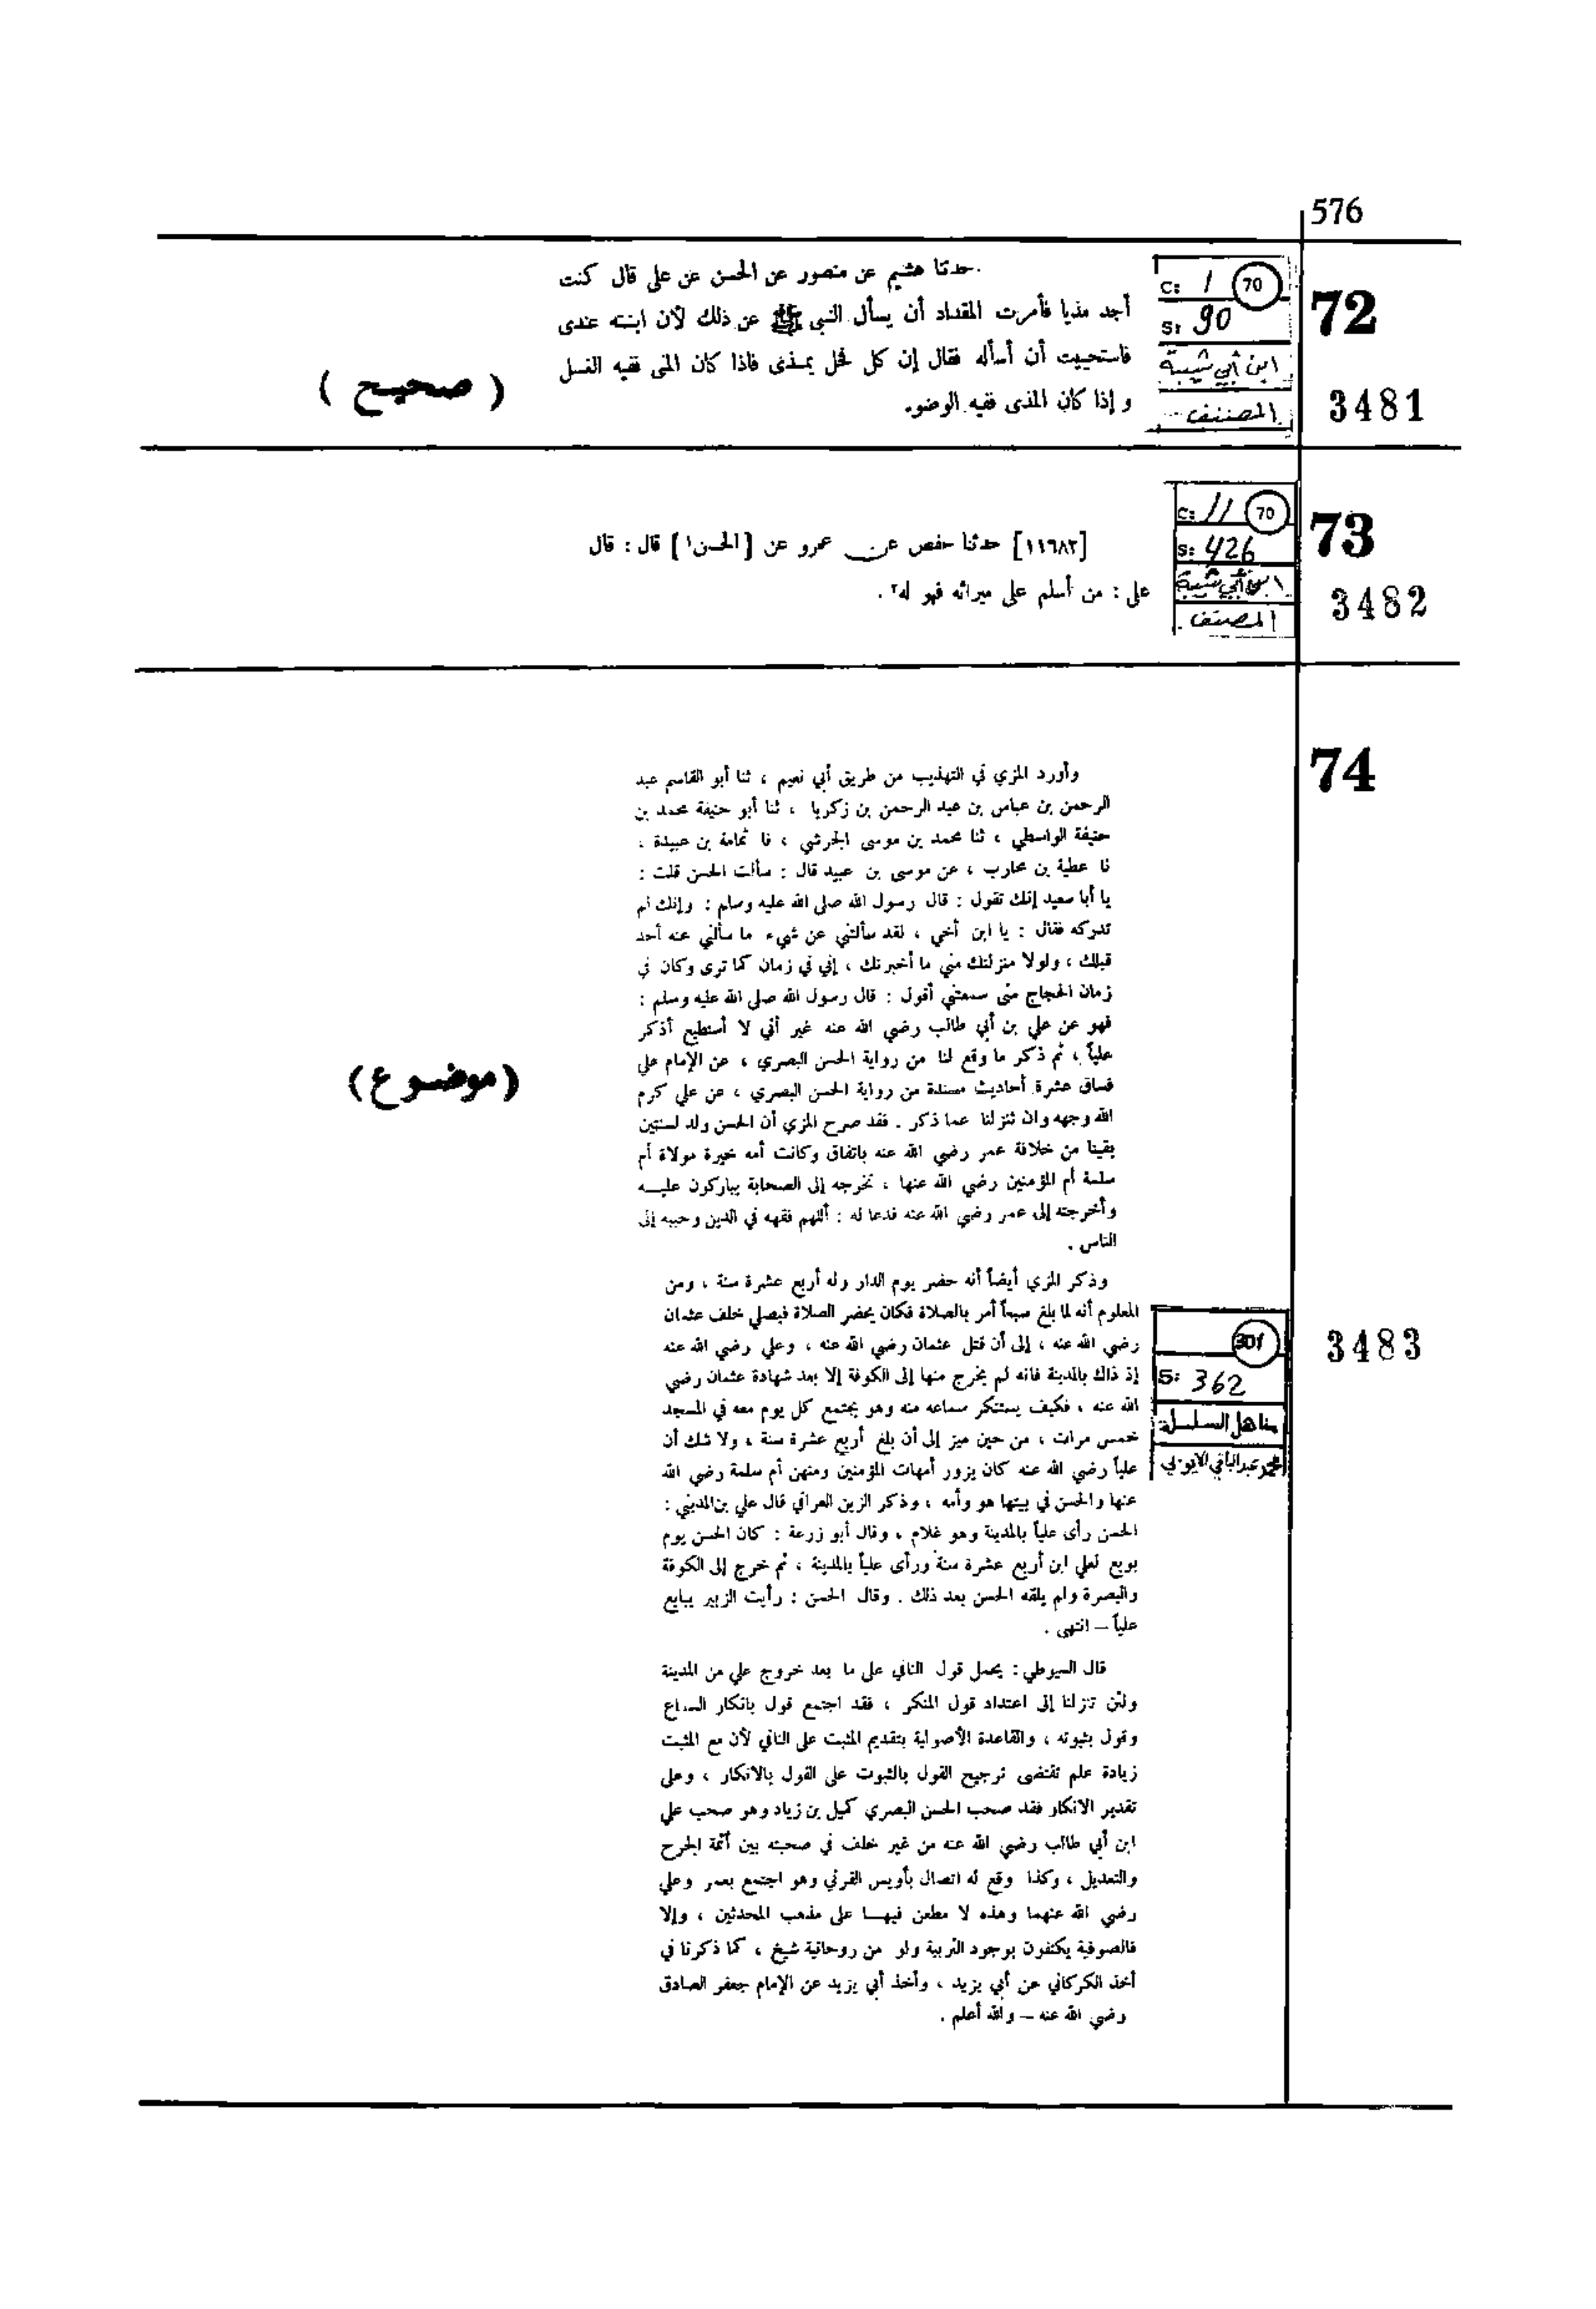 576
72
3481
C: 1 70
S: 90
ابن أبي شيبة
المصنف
حدثنا هشيم عن منصور عن الحسن عن على قال كنت
أجد مذيا فأمرت المقداد أن يسأل النبى ﷺ عن ذلك لأن ابنته عندى
فاستحييت أن أسأله فقال إن كل فحل يمذى فاذا كان المنى ففيه الغسل
و إذا كان المذى ففيه الوضوء.
( صحيح )
73
3482
C: 11 70
S: 426
ابن أبي شيبة
المصنف
[١١٦٨٢] حدثنا حفص عن عمرو عن [الحسن١] قال : قال
على : من أسلم على ميراثه فهو له٢ .
74
وأورد المزي في التهذيب من طريق أبي نعيم ، ثنا أبو القاسم عبد
الرحمن بن عباس بن عبد الرحمن بن زكريا ، ثنا أبو حنيفة محمد بن
حنيفة الواسطي ، ثنا محمد بن موسى الجرشي ، نا ثمامة بن عبيدة ،
نا عطية بن محارب ، عن موسى بن عبيد قال : سألت الحسن قلت :
يا أبا سعيد إنك تقول : قال رسول الله صلى الله عليه وسلم : وإنك لم
تدركه فقال : يا ابن أخي ، لقد سألتني عن شيء ما سألني عنه أحد
قبلك ، ولولا منزلتك مني ما أخبرتك ، إني في زمان كما ترى وكان في
زمان الحجاج متى سمعتني أقول : قال رسول الله صلى الله عليه وسلم :
فهو عن علي بن أبي طالب رضي الله عنه غير أني لا أستطيع أذكر
علياً ، ثم ذكر ما وقع لنا من رواية الحسن البصري ، عن الإمام علي
فساق عشرة أحاديث مسندة من رواية الحسن البصري ، عن علي كرم
الله وجهه وان تنزلنا عما ذكر . فقد صرح المزي أن الحسن ولد لسنتين
بقيتا من خلافة عمر رضي الله عنه باتفاق وكانت أمه خيرة مولاة أم
سلمة أم المؤمنين رضي الله عنها ، تخرجه إلى الصحابة يباركون عليه
وأخرجته إلى عمر رضي الله عنه فدعا له : اللهم فقهه في الدين وحببه إلى
الناس .
(موضوع)
وذكر المزي أيضاً أنه حضر يوم الدار وله أربع عشرة سنة ، ومن
المعلوم أنه لما بلغ سبعاً أمر بالصلاة فكان يحضر الصلاة فيصلي خلف عثمان
رضي الله عنه ، إلى أن قتل عثمان رضي الله عنه ، وعلي رضي الله عنه
إذ ذاك بالمدينة فانه لم يخرج منها إلى الكوفة إلا بعد شهادة عثمان رضي
الله عنه ، فكيف يستنكر سماعه منه وهو يجتمع كل يوم معه في المسجد
خمس مرات ، من حين ميز إلى أن بلغ أربع عشرة سنة ، ولا شك أن
علياً رضي الله عنه كان يزور أمهات المؤمنين ومنهن أم سلمة رضي الله
عنها والحسن في بيتها هو وأمه ، وذكر الزين العراقي قال علي بن المديني :
الحسن رأى علياً بالمدينة وهو غلام ، وقال أبو زرعة : كان الحسن يوم
بويع لعلي ابن أربع عشرة سنة ورأى علياً بالمدينة ، ثم خرج إلى الكوفة
والبصرة ولم يلقه الحسن بعد ذلك . وقال الحسن : رأيت الزبير يبايع
علياً – انتهى .
3483
301
S: 362
مناهل السلسلة
محمد عبد الباقي الايوبي
قال السيوطي : يحمل قول النافي على ما بعد خروج علي من المدينة
ولئن تنزلنا إلى اعتداد قول المنكر ، فقد اجتمع قول بانكار السماع
وقول بثبوته ، والقاعدة الأصولية بتقديم المثبت على النافي لأن مع المثبت
زيادة علم تقتضى ترجيح القول بالثبوت على القول بالانكار ، وعلى
تقدير الانكار فقد صحب الحسن البصري كميل بن زياد وهو صحب علي
ابن أبي طالب رضي الله عنه من غير خلف في صحبته بين أئمة الجرح
والتعديل ، وكذا وقع له اتصال بأويس القرني وهو اجتمع بعمر وعلي
رضي الله عنهما وهذه لا مطعن فيهـا على مذهب المحدثين ، وإلا
فالصوفية يكتفون بوجود التربية ولو من روحانية شيخ ، كما ذكرنا في
أخذ الكركاني عن أبي يزيد ، وأخذ أبي يزيد عن الإمام جعفر الصادق
رضي الله عنه – والله أعلم .